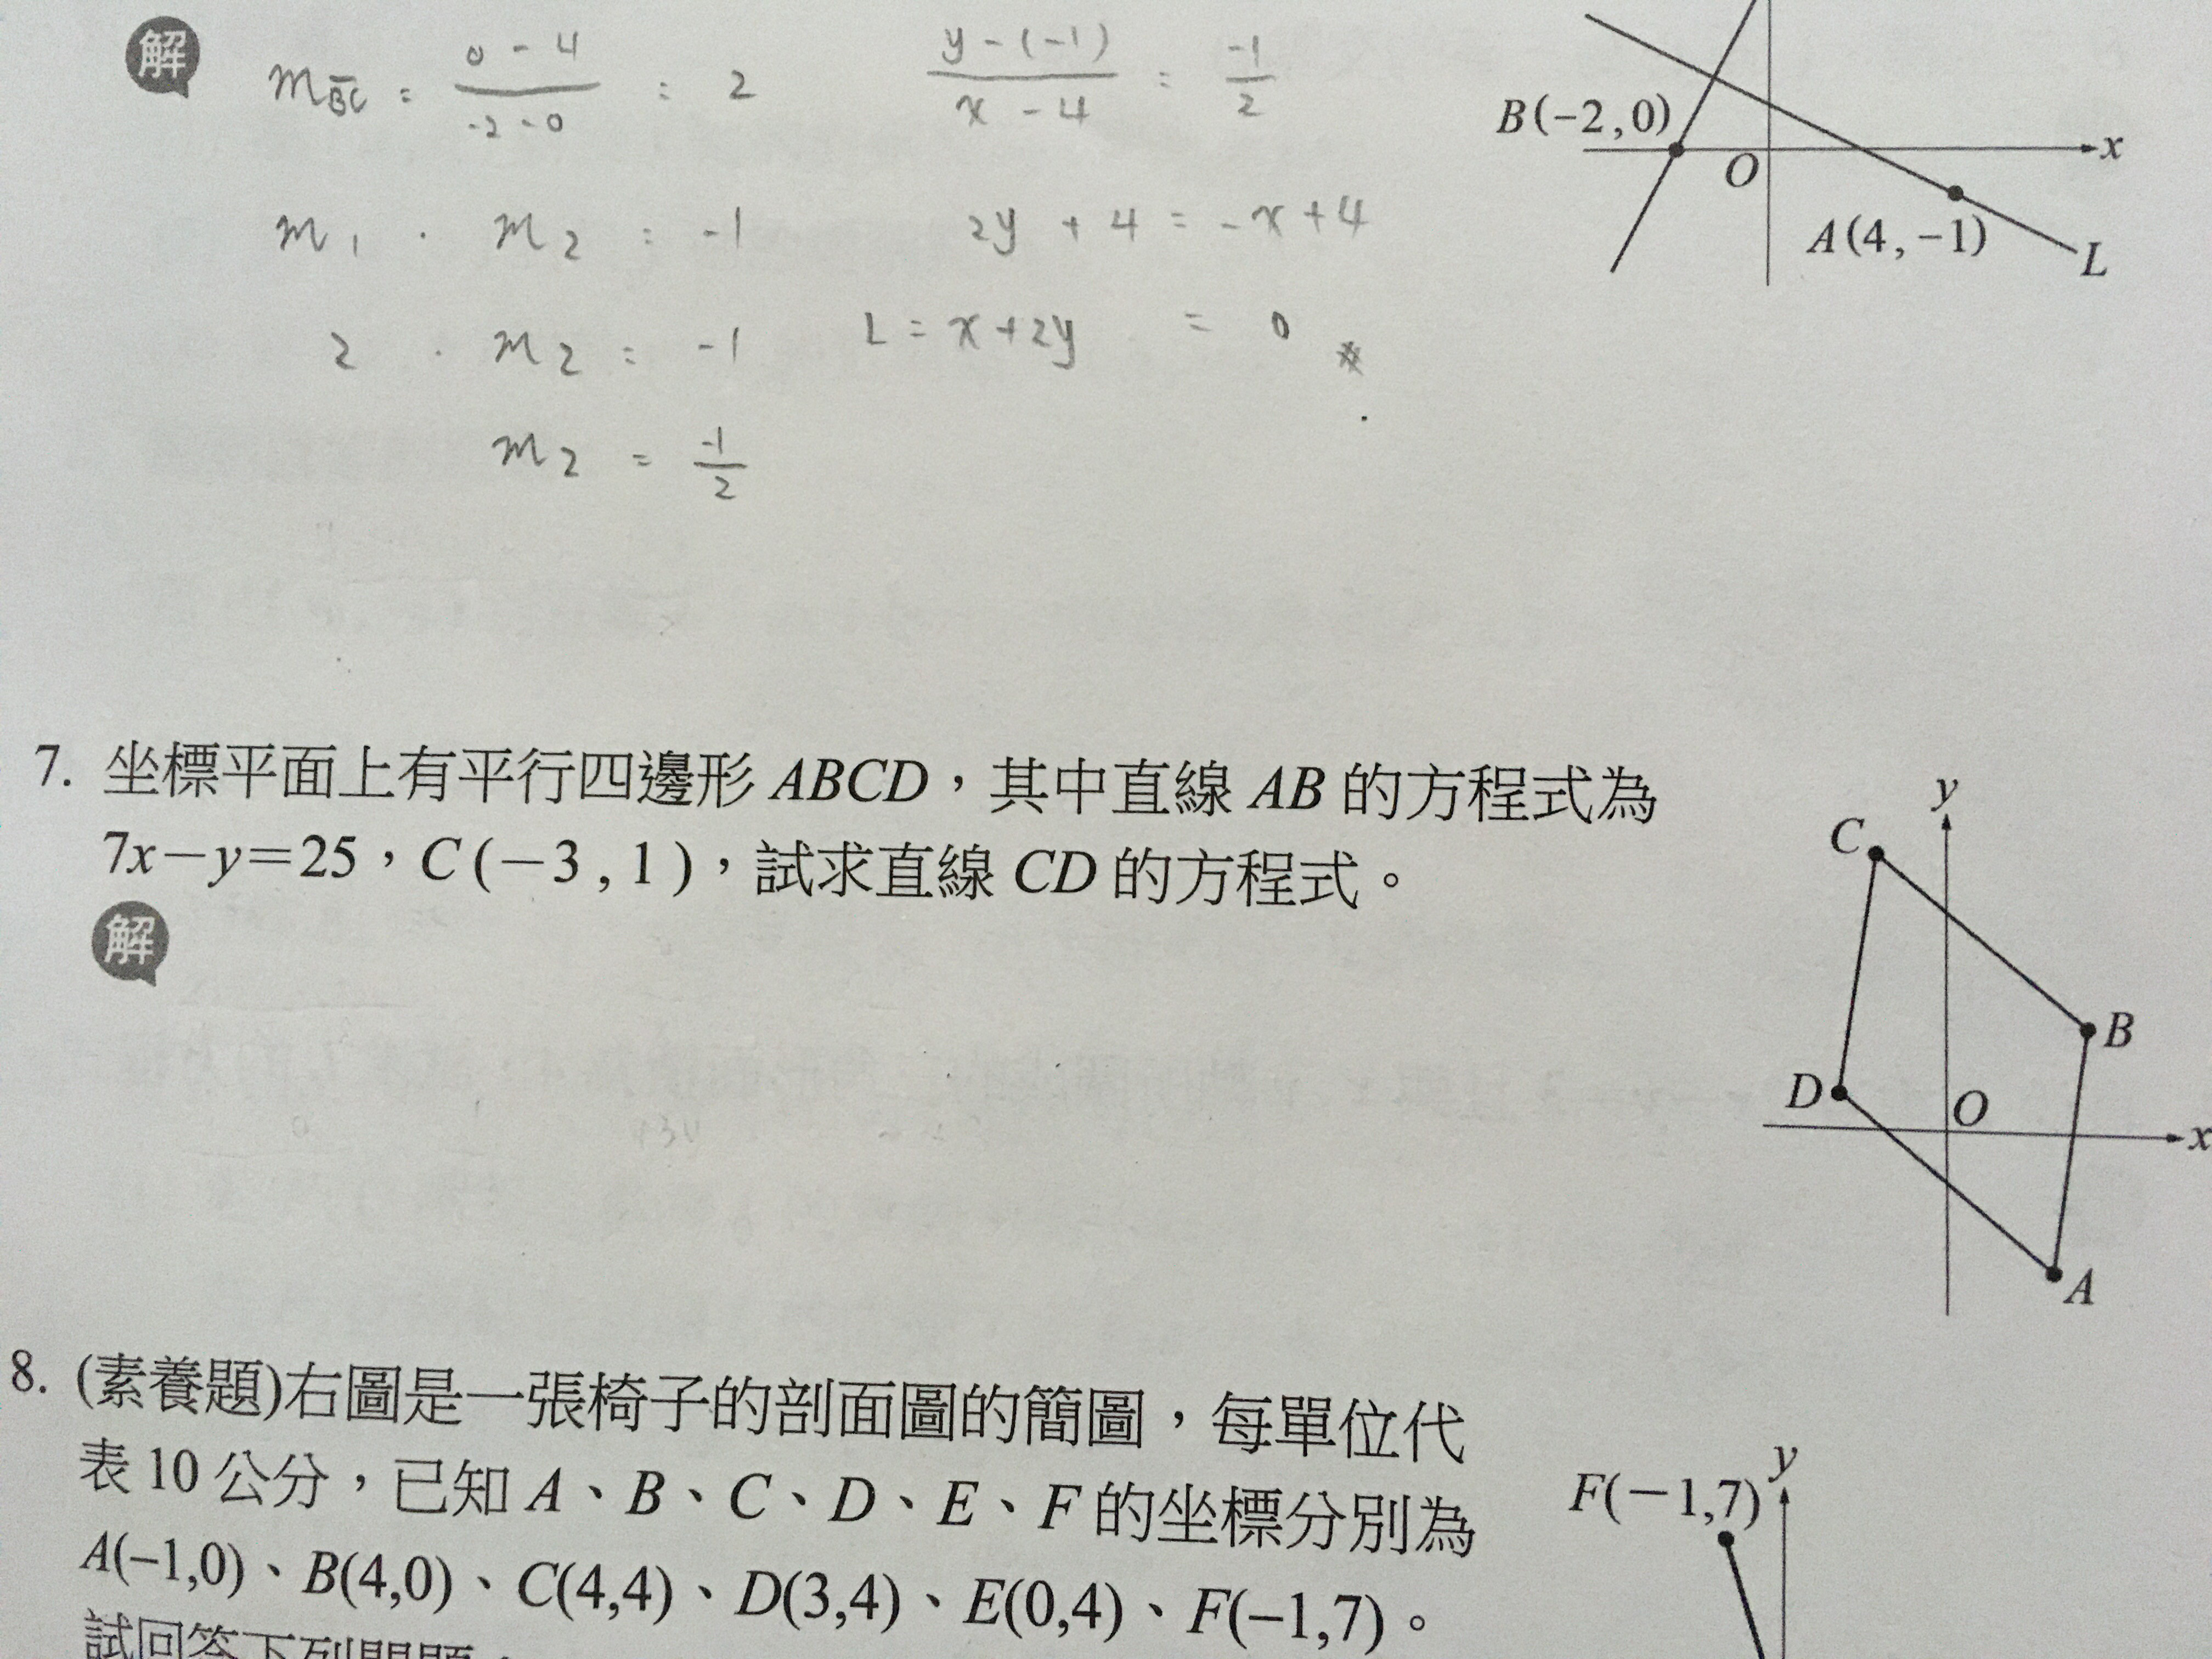 解
m BC = 0 - 4 / -2 - 0 = 2
y - (-1) / x - 4 = -1 / 2
m1 · m2 = -1
2y + 4 = -x + 4
2 · m2 = -1
L = x + 2y = 0 ※
m2 = -1 / 2
B(-2,0)
x
O
A(4,-1)
L
7. 坐標平面上有平行四邊形 ABCD，其中直線 AB 的方程式為
7x－y＝25，C(－3,1)，試求直線 CD 的方程式。
解
y
C
B
D
O
x
A
8. (素養題)右圖是一張椅子的剖面圖的簡圖，每單位代
表 10 公分，已知 A、B、C、D、E、F 的坐標分別為
A(–1,0)、B(4,0)、C(4,4)、D(3,4)、E(0,4)、F(–1,7)。
試回答下列問題：
y
F(－1,7)